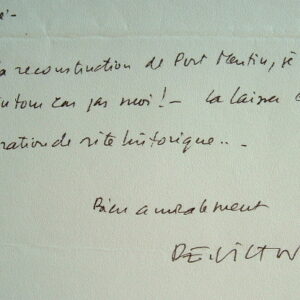 la reconstruction de Port Mentin, je
en tout cas pas moi! - La laisser
ration de site historique..
Bien amicalement